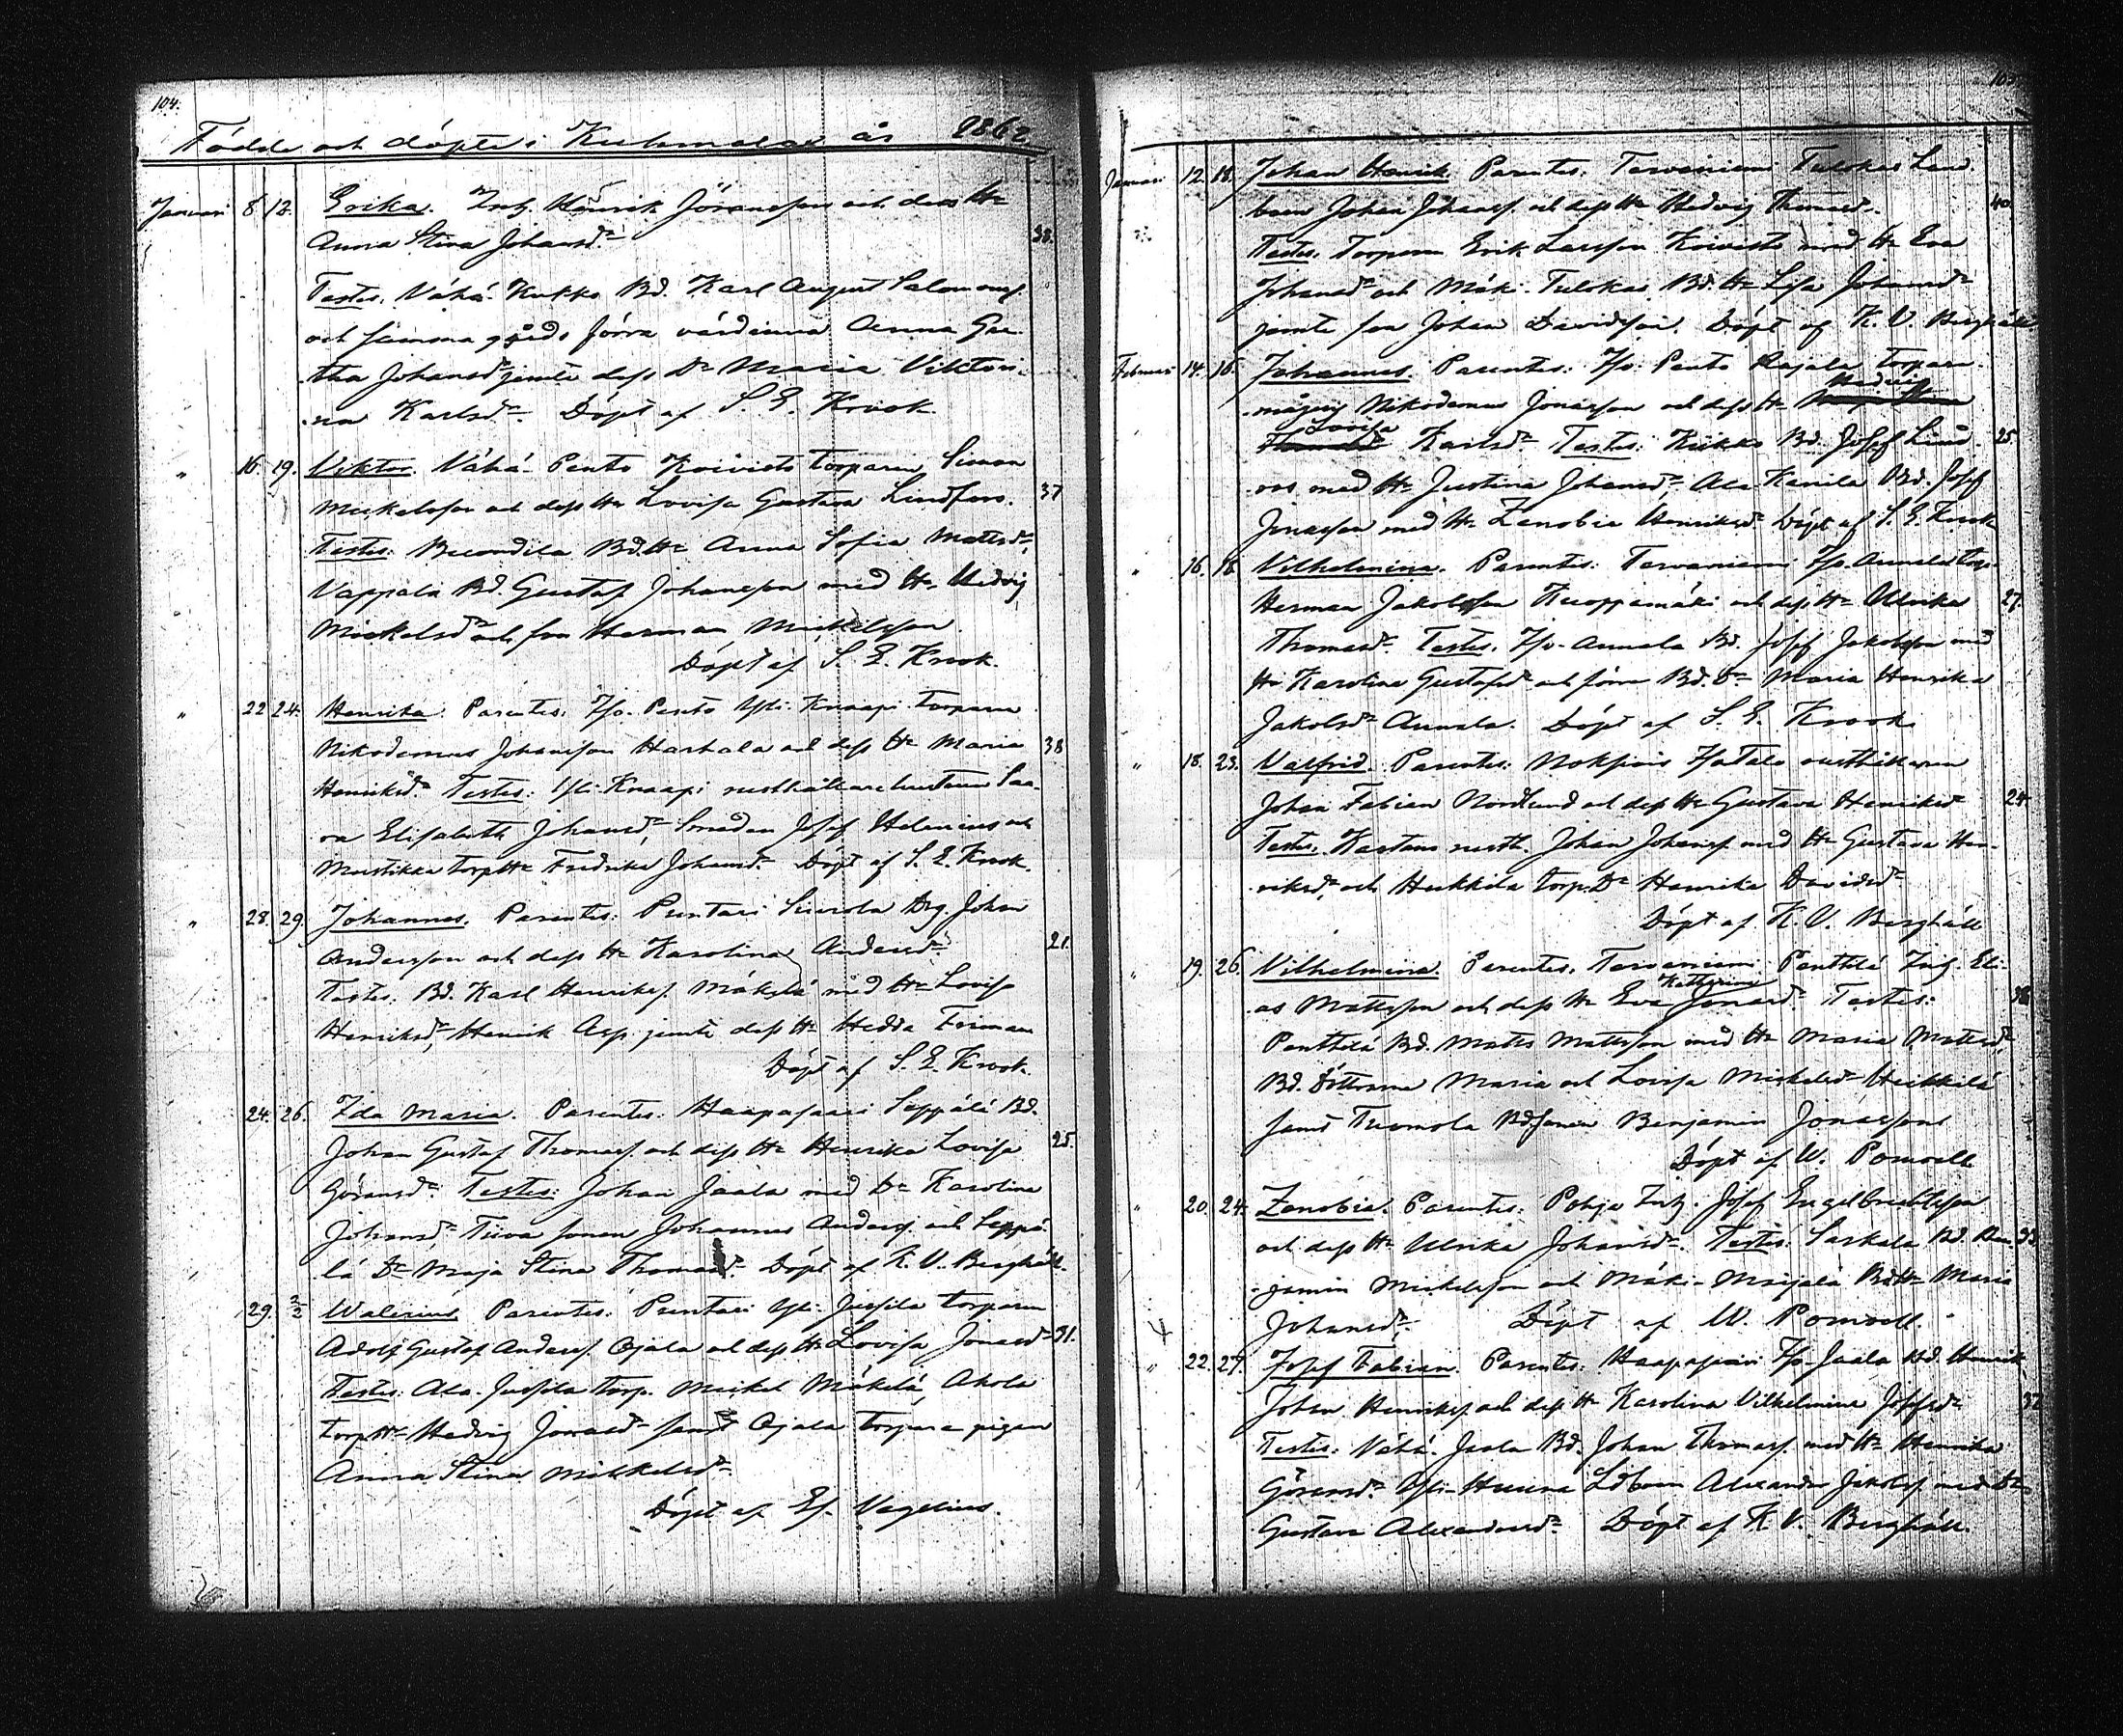 104.
Födde och döpte i Kulmalax år 1862
Januari 8 12. Erika. Inh. Henrik Göransson och dess H:u
Anna Stina Johansd:r 38.
Testes: Vähä-Kukko Bd. Karl August Salomonss.
och samma gårds förra värdinna Anna Gre-
tha Johansd:r jemte dess D:r Maria Viktori-
na Karlsd:r Döpt af S. E. Krook
" 16. 19. Viktor. Vähä-Pento Koivisto torparen Simon
Mickelsson och dess H:u Lovisa Gustava Lindfors. 37
Testes: Bd. H:u Anna Sofia Mattsd:r,
Vappala Bd. Gustaf Johansson med H:u Hedvig
Mickelsd:r och son Herman Mickelsson
Döpt af S. E. Krook.
" 22 24. Henrika. Parentes: Iso-Pento Yli-Knaapi torparen
Nikodemus Johansson Harhala och dess H:u Maria 38
Henriksd:r Testes: Yli-Knaapi rusthållarehustrun Saa-
ra Elisabeth Johansd:r, Smeden Josef Helenius och
Mustikka torp H:u Fredrika Johansd:r Döpt af S. E. Krook.
" 28. 29. Johannes. Parentes: Puntari Suurola Drg. Johan
Andersson och dess H:u Karolina Andersd:r 21.
Testes. Bd. Karl Henrikss. Mäkelä med H:u Lovisa
Henriksd:r, Henrik Asp jemte dess H:u Hedda Friman
Döpt af S. E. Krook.
24. 26. Ida Maria. Parentes: Haapasaari Seppälä Bd.
Johan Gustaf Thomass. och dess H:u Henrika Lovisa 25.
Göransd:r Testes: Johan Jaala med D:r Karolina
Johansd:r, Tuva sonen Johannes Anderss. och Seppä-
lä D:r Maja Stina Thomasd:r Döpt af K. V. Berghäll.
29. 2/2 Walerius. Parentes: Puntari Yli-Jussila torparen
Adolf Gustaf Anderss. Ojala och dess H:u Lovisa Jonasd:r 31.
Testes: Ala-Jussila torp. Mickel Mäkelä, Ahola
torp H:u Hedvig Jonasd:r samt Ojala torpare pigan
Anna Stina Mickelsd:r
Döpt af Ef. Vegelius.
105.
Januari 12. 18. Johan Henrik. Parentes: Tarvaniemi Tulokas Land-
boen Johan Johanss. och dess H:u Hedvig Thomasd:r. 40.
Testes: Torparen Erik Larsson Koivisto med H:u Eva
Johansd:r och Mäki-Tulokas Bd. H:u Lisa Johansd:r
jemte son Johan Davidsson. Döpt af K. V. Berghäll
Februari 14. 16. Johannes. Parentes: Iso-Pento Rajala torpare-
mågen Nikodemus Jonasson och dess H:u Hedvig
Lovisa Karlsd:r Testes: Kukko Bd. Josef Lind- 25
roos med H:u Justina Johansd:r, Ala-Kaunila Bd. Josef
Jonasson med H:u Zenobia Henriksd:r Döpt af S. E. Krook
" 16. 18. Vilhelmina. Parentes: Tarvaniemi Iso-Annala torp.
Herman Jakobsson Kuoppamäki och dess H:u Ulrika 27.
Thomasd:r Testes. Iso-Annala Bd. Josef Jakobsson med
H:u Karolina Gustafsd:r och förra Bd. D:r Maria Henrika
Jakobsd:r Annala. Döpt af S. E. Krook
" 18. 23. Valfrid. Parentes: IsoTalo rusthållaren
Johan Fabian Nordlund och dess H:u Gustava Henriksd:r 24.
Testes. rusth. Johan Johanss. med H:u Gustava Hen-
riksd:r och Heikkilä torp. D:r Henrika Davidsd:r
Döpt af K. V. Berghäll
" 19. 26. Vilhelmina. Parentes. Tarvaniemi Penttilä Inh. Eli-
as Mattsson och dess H:u Eva Katharina Jonasd:r Testes: 36
Penttilä Bd. Matts Mattsson med H:u Maria Mattsd:r,
Bd. Döttrarne Maria och Lovisa Mickelsd:r Heikkilä
samt Tuomola Bd. sonen Benjamin Jonasson
Döpt af W. Pomoell
" 20. 24. Zenobia. Parentes: Pohja Inh. Josef Engelbrechtsson
och dess H:u Ulrika Johansd:r. Testes: Saskala Bd. Ben- 33.
jamin Mickelsson och Mäki-Maijala Bd. H:u Maria
Johansd:r. Döpt af W. Pomoell.
" 22. 27. Josef Fabian. Parentes: Haapasaari Iso-Jaala Bd. Henrik
Johan Henrikss. och dess H:u Karolina Vilhelmina Josefsd:r 32
Testes: Vähä-Jaala Bd. Johan Thomass. med H:u Henrika
Göransd:r Yli- Ldboen Alexander Jakobss. med D:r
Gustava Alexandersd:r Döpt af K. V. Berghäll.